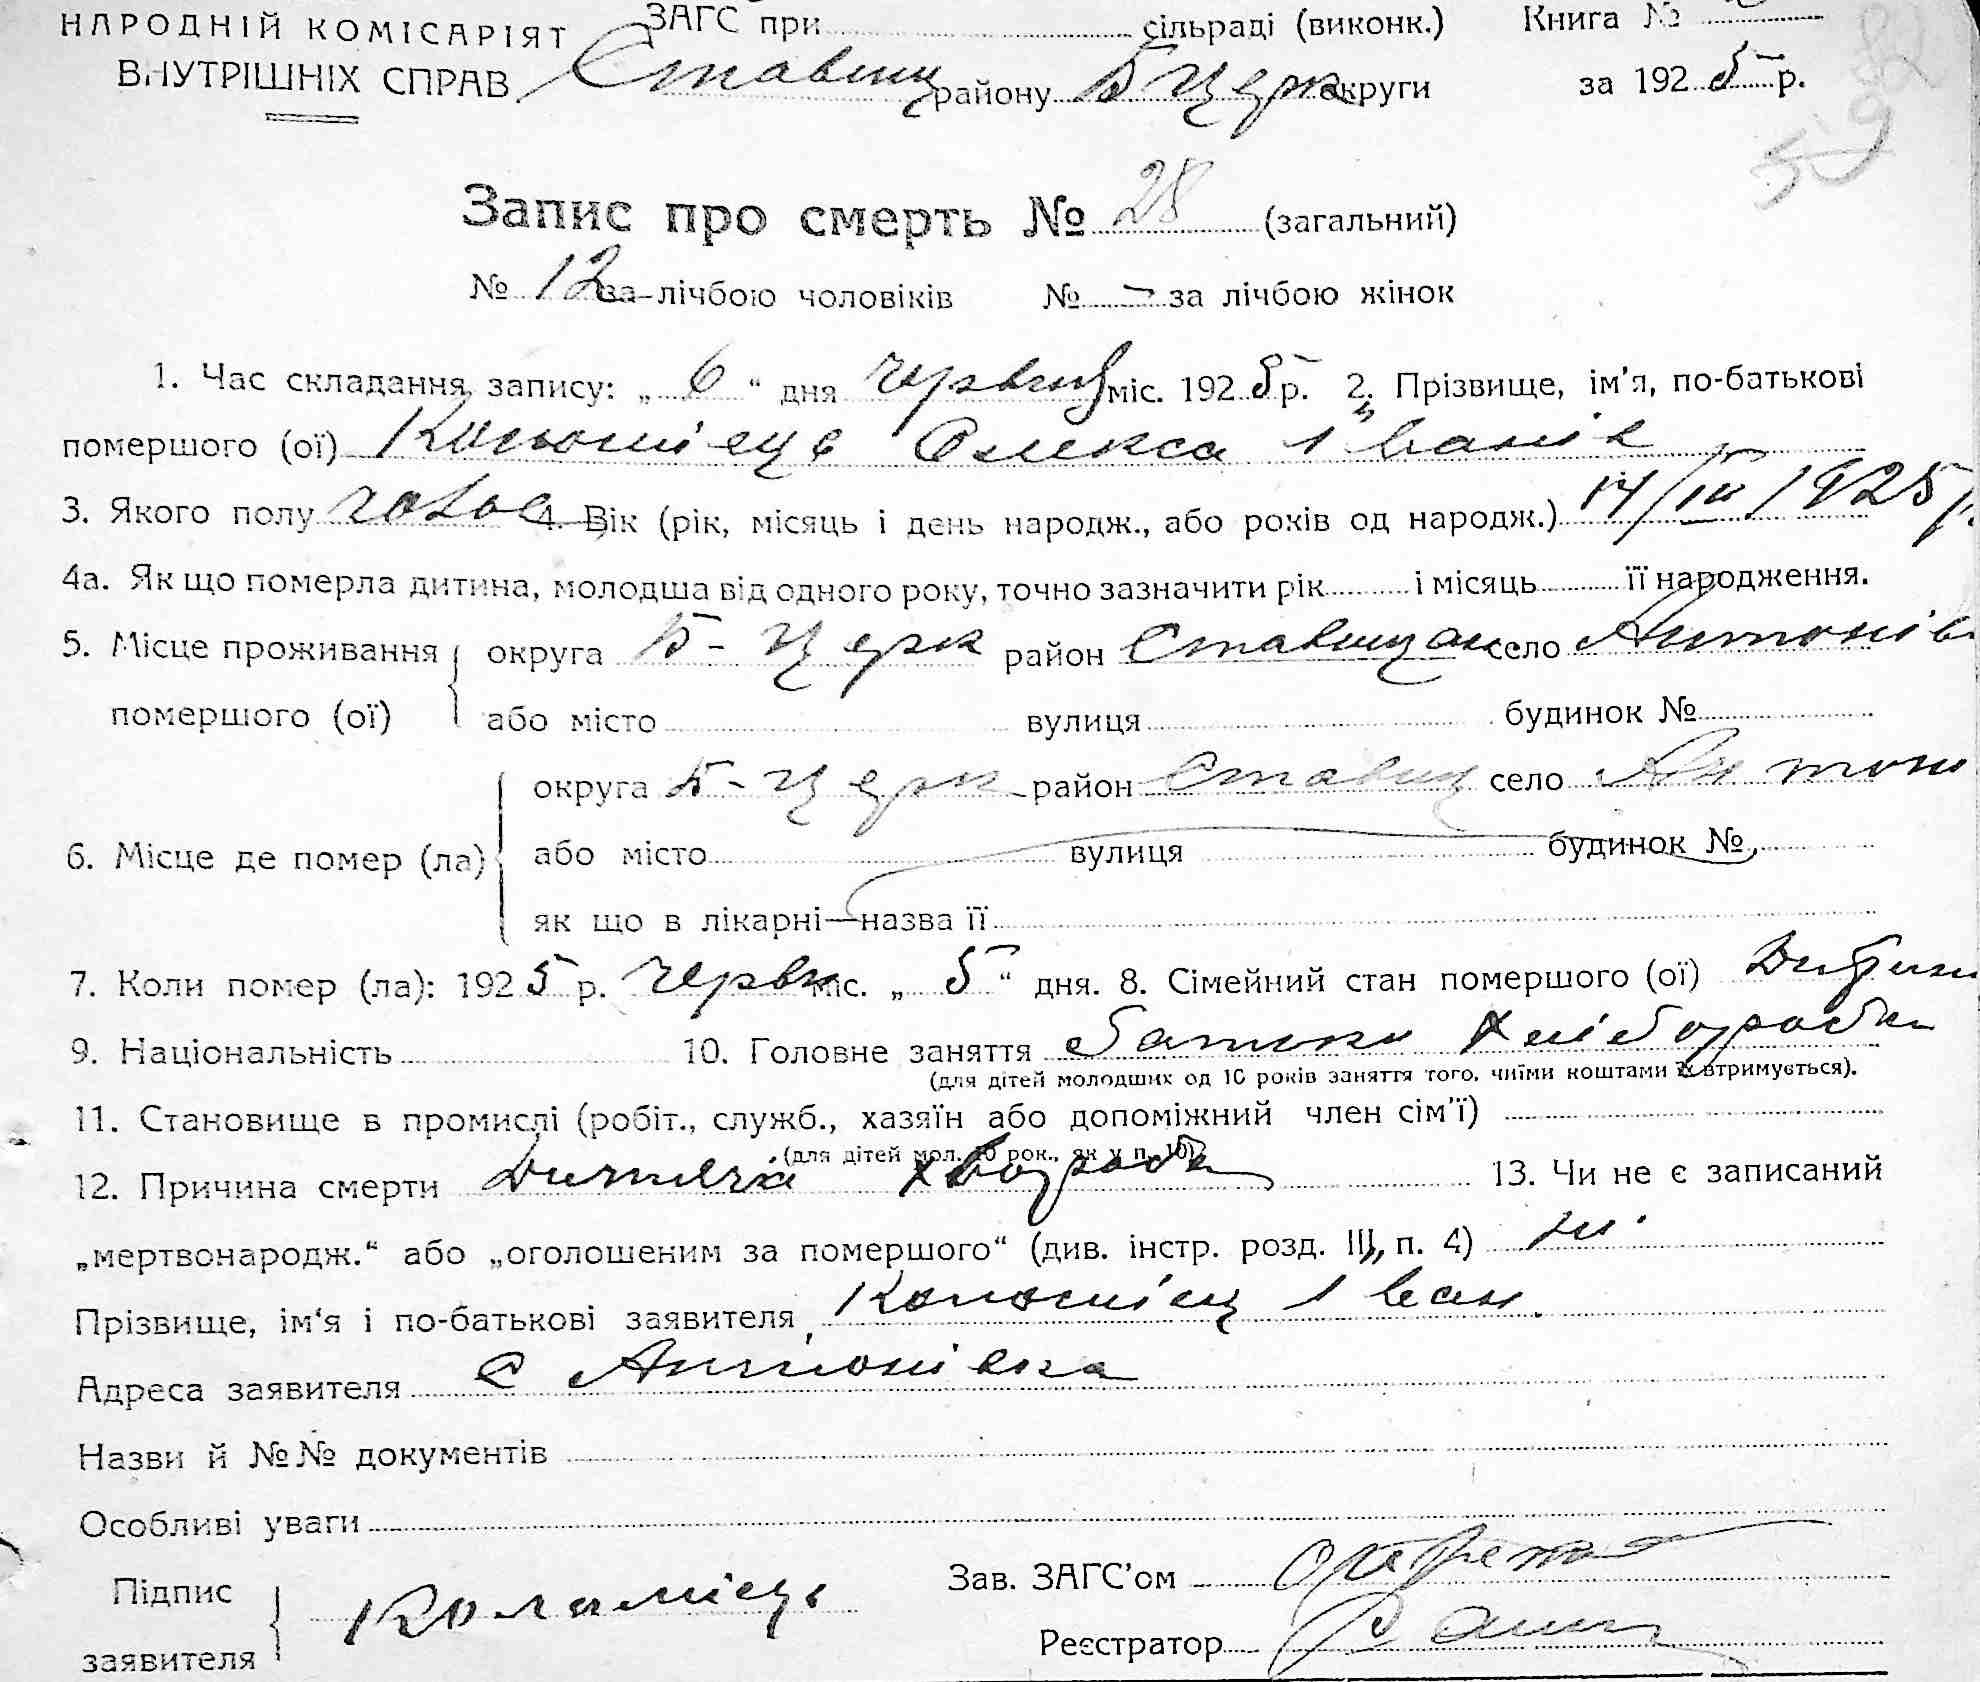 НАРОДНІЙ КОМІСАРІЯТ ЗАГС при сільраді (виконк.) Книга №
ВНУТРІШНІХ СПРАВ Ставищ району Б Церк округи за 1925 р.
59
Запис про смерть № 28 (загальний)
№ 12 за лічбою чоловіків № – за лічбою жінок
1. Час складання запису: „ 6 “ дня червня міс. 1925 р. 2. Прізвище, ім’я, по-батькові
помершого (ої) Коломієць Олекса Іванів
3. Якого полу чолов 4. Вік (рік, місяць і день народж., або років од народж.) 14/III 1925 р.
4а. Як що померла дитина, молодша від одного року, точно зазначити рік і місяць її народження.
5. Місце проживання округа Б-Церк район Ставищан село Антонів
помершого (ої) або місто вулиця будинок №
округа Б-Церк район Ставищ село Антон
6. Місце де помер (ла) або місто вулиця будинок №
як що в лікарні—назва її
7. Коли помер (ла): 1925 р. червн міс. „ 5 “ дня. 8. Сімейний стан помершого (ої) Дитина
9. Національність 10. Головне заняття батьки хлібороби
(для дітей молодших од 10 років заняття того, чиїми коштами їх втримується).
11. Становище в промислі (робіт., служб., хазяїн або допоміжний член сім’ї)
(для дітей мол. 10 рок., як у п. 10)
12. Причина смерти Дитяча хвороба 13. Чи не є записаний
„мертвонародж.“ або „оголошеним за помершого“ (див. інстр. розд. III, п. 4) ні
Прізвище, ім‘я і по-батькові заявителя Коломієц Іван.
Адреса заявителя с Антонівка
Назви й №№ документів
Особливі уваги
Підпис Зав. ЗАГС’ом
заявителя Коломієць Реєстратор